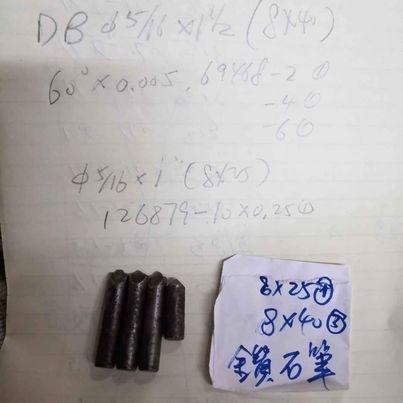 DB φ5/16×1"1/2 (8×40)
60°×0.005. 69468-2 ①
-4 ①
-6 ①
φ5/16×1" (8×25)
126879-10×0.25 ①
8×25④
8×40③
鑽石筆